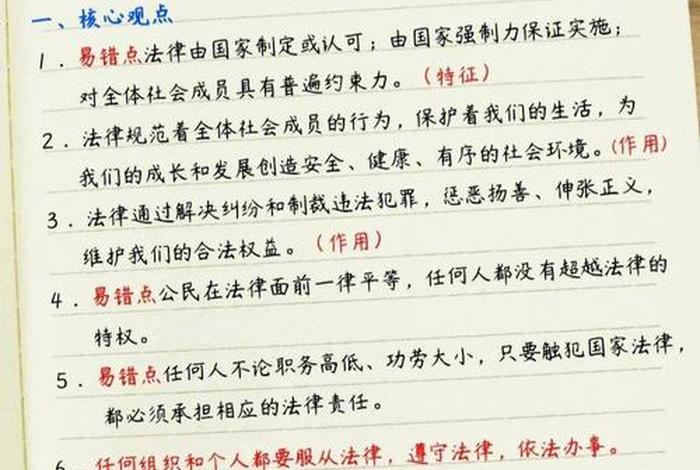 一、核心观点
1. 易错点法律由国家制定或认可；由国家强制力保证实施；
对全体社会成员具有普遍约束力。（特征）
2. 法律规范着全体社会成员的行为，保护着我们的生活，为
我们的成长和发展创造安全、健康、有序的社会环境。（作用）
3. 法律通过解决纠纷和制裁违法犯罪，惩恶扬善、伸张正义，
维护我们的合法权益。（作用）
4. 易错点公民在法律面前一律平等，任何人都没有超越法律的
特权。
5. 易错点任何人不论职务高低、功劳大小，只要触犯国家法律，
都必须承担相应的法律责任。
6. 任何组织和个人都要服从法律，遵守法律，依法办事。